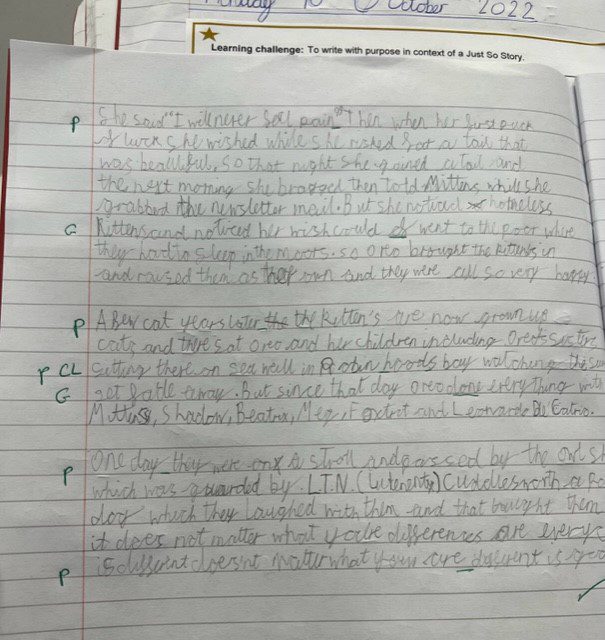 Monday 10 October 2022
Learning challenge: To write with purpose in context of a Just So Story.
P She said "I will never feel pain" Then when her first
of luck she wished while she risked for a tail that
was beautiful, so that night she gained a tail and
the next morning she bragged then told Mittens while she
grabbed the newsletter mail. But she noticed homeless
G Kittens and noticed her wish could of went to the poor where
they had to sleep in the moors. so Oreo brought the kittens in
and raised them as own and they were all so very happy
P A few cat years later the the kitten's are now grown up
cats and there sat oreo and her children including Oreo's
P CL Sitting there on sea wall in Robin hoods bay watching the
G get fatle away. But since that day oreo done everything with
Mittins, Shadow, Beatrix, Meg, Foxtrot and Leonardo Di Catrio.
P One day they were on a stroll and passed by the owl
which was guarded by L.T.N. Cuddlesworth a
dog which they laughed with them and that them
it does not matter what differences are
P is different doesn't matter what your are different is